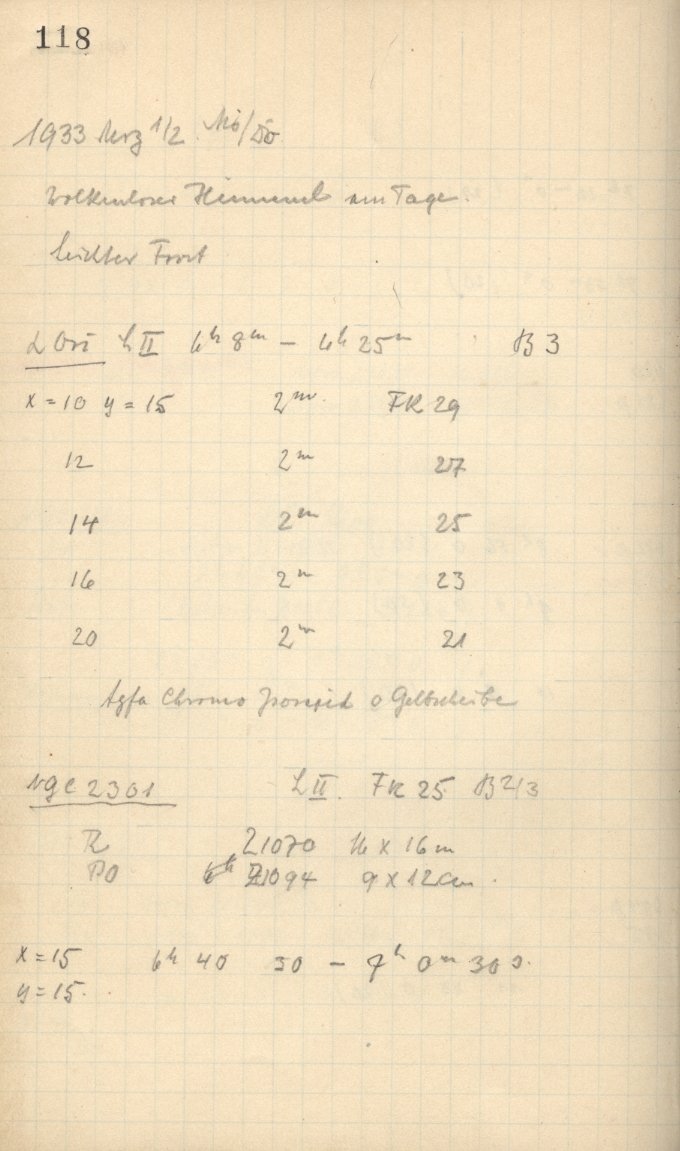 118
1933 März 1/2 Mi/Do
Wolkenloser Himmel am Tage.
leichter Frost
α Ori L II 6h 8m – 6h 25m B 3
x = 10 y = 15 2m FK 29
12 2m 27
14 2m 25
16 2m 23
20 2m 21
Agfa Chromo Isorapid o Gelbscheibe
NGC 2301 L II. FK 25 B 2/3
R 21070 16 x 16 cm
PO 21094 9 x 12 cm.
x = 15 6h 40 30 – 7h 0m 30s.
y = 15.